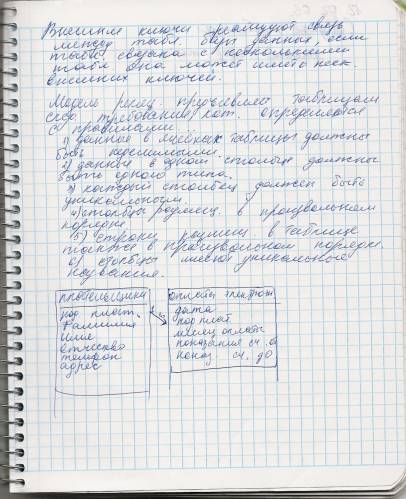 Внешние ключи реализуют связь
между табл. базы данных, если
табл связана с несколькими
табл она может иметь неск.
внешних ключей.
Модель реляц. предъявляет таблицам
след требования кот. определяются
с правилами.
1) данные в ячейках таблицы должны
быть
2) данные в одном столбце должны
быть одного типа.
3) каждый столбец должен быть
уникальным.
4) столбцы размещ. в произвольном
порядке
5) строки размещ. в таблице
также в произвольном порядке.
6) столбцы имеют уникальные
названия.
плательщики
код плат.
Фамилия
Имя
Отчество
телефон
адрес
оплаты электроэн
дата
код плат
месяц оплаты
показания сч.
показ сч. до